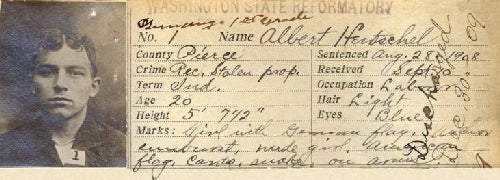 WASHINGTON STATE REFORMATORY
No. 1 Name Albert Hertschel
County Pierce Sentenced Aug. 28, 1908
Crime Rec. Stolen prop. Received Sept.
Term Ind. Occupation
Age 20 Hair Light
Height 5' 7½" Eyes Blue
Marks: Girl with German flag,
nude girl,
flag, Cards, on arms.
Discharged
Dec. 30" 09
1